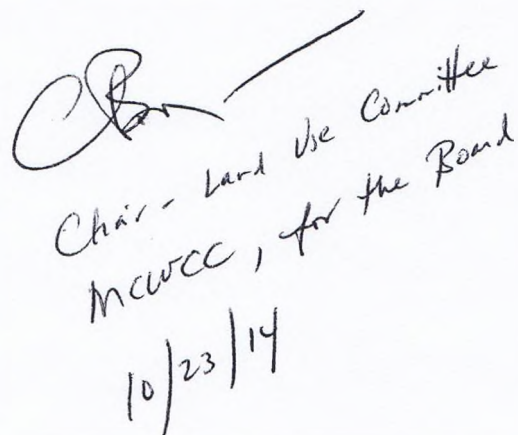 Chair - Land Use Committee
MCWCC, for the Board
10/23/14